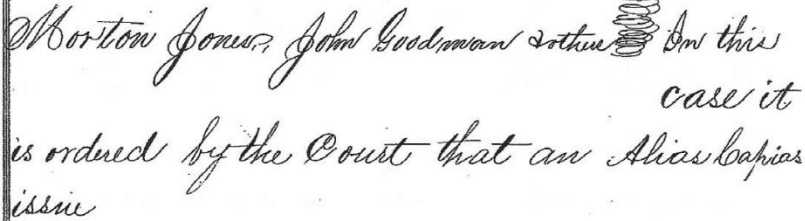 Morton Jones, John Goodman & others In this
case it
is ordered by the Court that an Alias Capias
issue